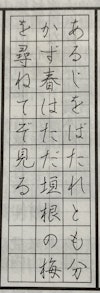 あるじをばたれとも分
かず春はただ垣根の梅
を尋ねてぞ見る